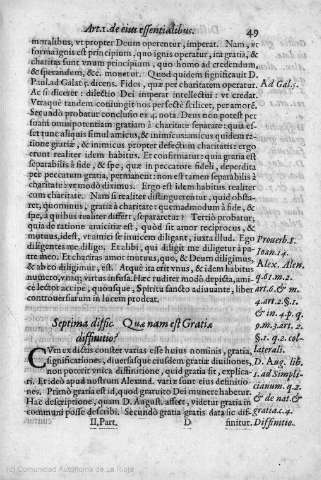 Art. 1. de eius essentialibus. 49
moralibus, vt propter Deum operentur, imperat. Nam, vt
forma ignis est principium, quo ignis operatur, ita gratia, &
charitas sunt vnum principium, quo homo ad credendum,
& sperandum, &c. mouetur. Quod quidem significauit D.
Paul. ad Galat. 5. dicens. Fides, quæ per charitatem operatur. Ad Gal. 5.
Ac si diceret: dilectio Dei imperat intellectui: vt credat.
Vtraque tandem coniungit nos perfectè scilicet, per amorẽ.
Secundò probatur conclusio ex 4. nota. Deus non potest per
suam omnipotentiam gratiam à charitate separare: quia es-
set tunc aliquis simul amicus, & inimicus: amicus quidem ra-
tione gratiæ, & inimicus propter defectum charitatis: ergo
erunt realiter idem habitus. Et confirmatur: quia gratia est
separabilis à fide, & spe, quæ in peccatore fideli, deperdita
per peccatum gratia, permanent: non est tamen separabilis à
charitate: vt modò diximus. Ergo est idem habitus realiter
cum charitate. Nam si realiter distinguerentur, quid obsta-
ret, quominus, gratia à charitate: quemadmodum à fide, &
spe, à quibus realiter differt, separaretur? Tertiò probatur,
quia de ratione amicitiæ est, quòd sit amor reciprocus, &
mutuus, idest, vt amici se inuicem diligant, iuxta illud. Ego
diligentes me diligo. Et alibi, qui diligit me diligetur à pa- Prouerb. 8.
tre meo. Et charitas amor mutuus, quo, & Deum diligimus, Ioan. 14.
& ab eo diligimur, est. Atque ita erit vnus, & idem habitus Alex. Alen.
numero, vnaq; virtus infusa. Hæc ruditer modò depicta, ami- q. 61. m. 2.
cè lector accipe, quousque, Spiritu sancto adiuuante, liber art. 6. & m.
controuersiarum in lucem prodeat. 4. art. 2. §. 1.
& in. 4. p. q.
Septima diffic Quæ nam est Gratiæ 9. m. 3. art. 2.
diffinitio? §. 1. q. 2. col-
CVm ex dictis constet varias esse huius nominis, gratia, laterali.
significationes, diuersasque eiusdem gratiæ diuisiones, D. Aug. lib.
non poterit vnica diffinitione, quid gratia sit, explica- 1. ad Simpli-
ri. Et ideò apud nostrum Alexand. variæ sunt eius definitio- cianum. q. 2.
nes. Primò gratia est id, quod gratuitò Dei munere habetur. & de nat. &
Hac descriptione, quam D. August. affert, videtur gratia in gratia. c. 4.
communi posse describi. Secundò gratia gratis data sic dif- Diffinitio.
II. Part. D finitur.
(c) Comunidad Autónoma de La Rioja